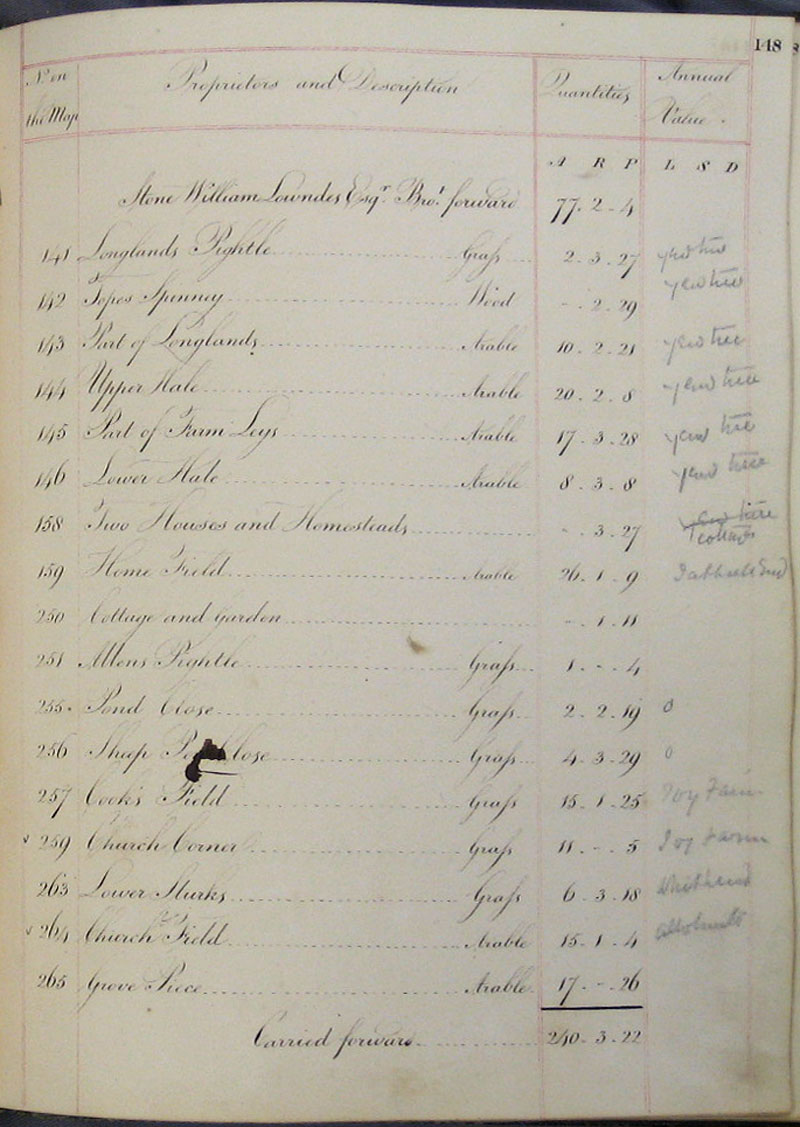 148
No. on the Map Proprietors and Description Quantities Annual Value
A R P L S D
Stone William Lowndes Esqr. Brot. forward 77 - 2 - 4
141 Longlands Pightle Grass 2 - 3 - 27 yew tree
142 Topes Spinney Wood - - 2 - 29 yew tree
143 Part of Longlands Arable 10 - 2 - 21 yew tree
144 Upper Hale Arable 20 - 2 - 8 yew tree
145 Part of Farm Leys Arable 17 - 3 - 28 yew tree
146 Lower Hale Arable 8 - 3 - 8 yew tree
158 Two Houses and Homesteads - - 3 - 27 yew tree
159 Home Field Arable 26 - 1 - 9
250 Cottage and Garden - - 1 - 11
251 Allens Pightle Grass 1 - - - 4
255 Pond Close Grass 2 - 2 - 19 0
256 Sheep Close Grass 4 - 3 - 29 0
257 Cook's Field Grass 15 - 1 - 25
259 Church Corner Grass 11 - - - 5
263 Lower Sturks Grass 6 - 3 - 18
264 Church Field Arable 15 - 1 - 4 allotments
265 Grove Piece Arable 17 - - - 26
Carried forward 240 - 3 - 22